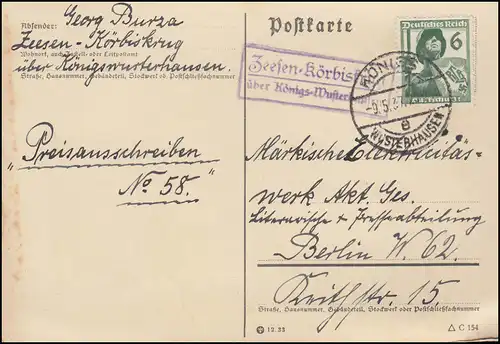 Absender: Georg Burza
Zeesen-Körbiskrug
Wohnort, auch Zustell- oder Leitpostamt
über Königswusterhausen.
Straße, Hausnummer, Gebäudeteil, Stockwerk od. Postschließfachnummer
Postkarte
Zeesen-Körbis
über Königs-Wuster
Deutsches Reich
6
WUSTERHAUSEN
e
„Preisausschreiben
No 58."
Märkisches Elektrizitäts-
werk Akt. Ges.
Literarische + Presseabteilung
Berlin W. 62.
Keithstr. 15.
Straße, Hausnummer, Gebäudeteil, Stockwerk oder Postschließfachnummer
12.33
C 154